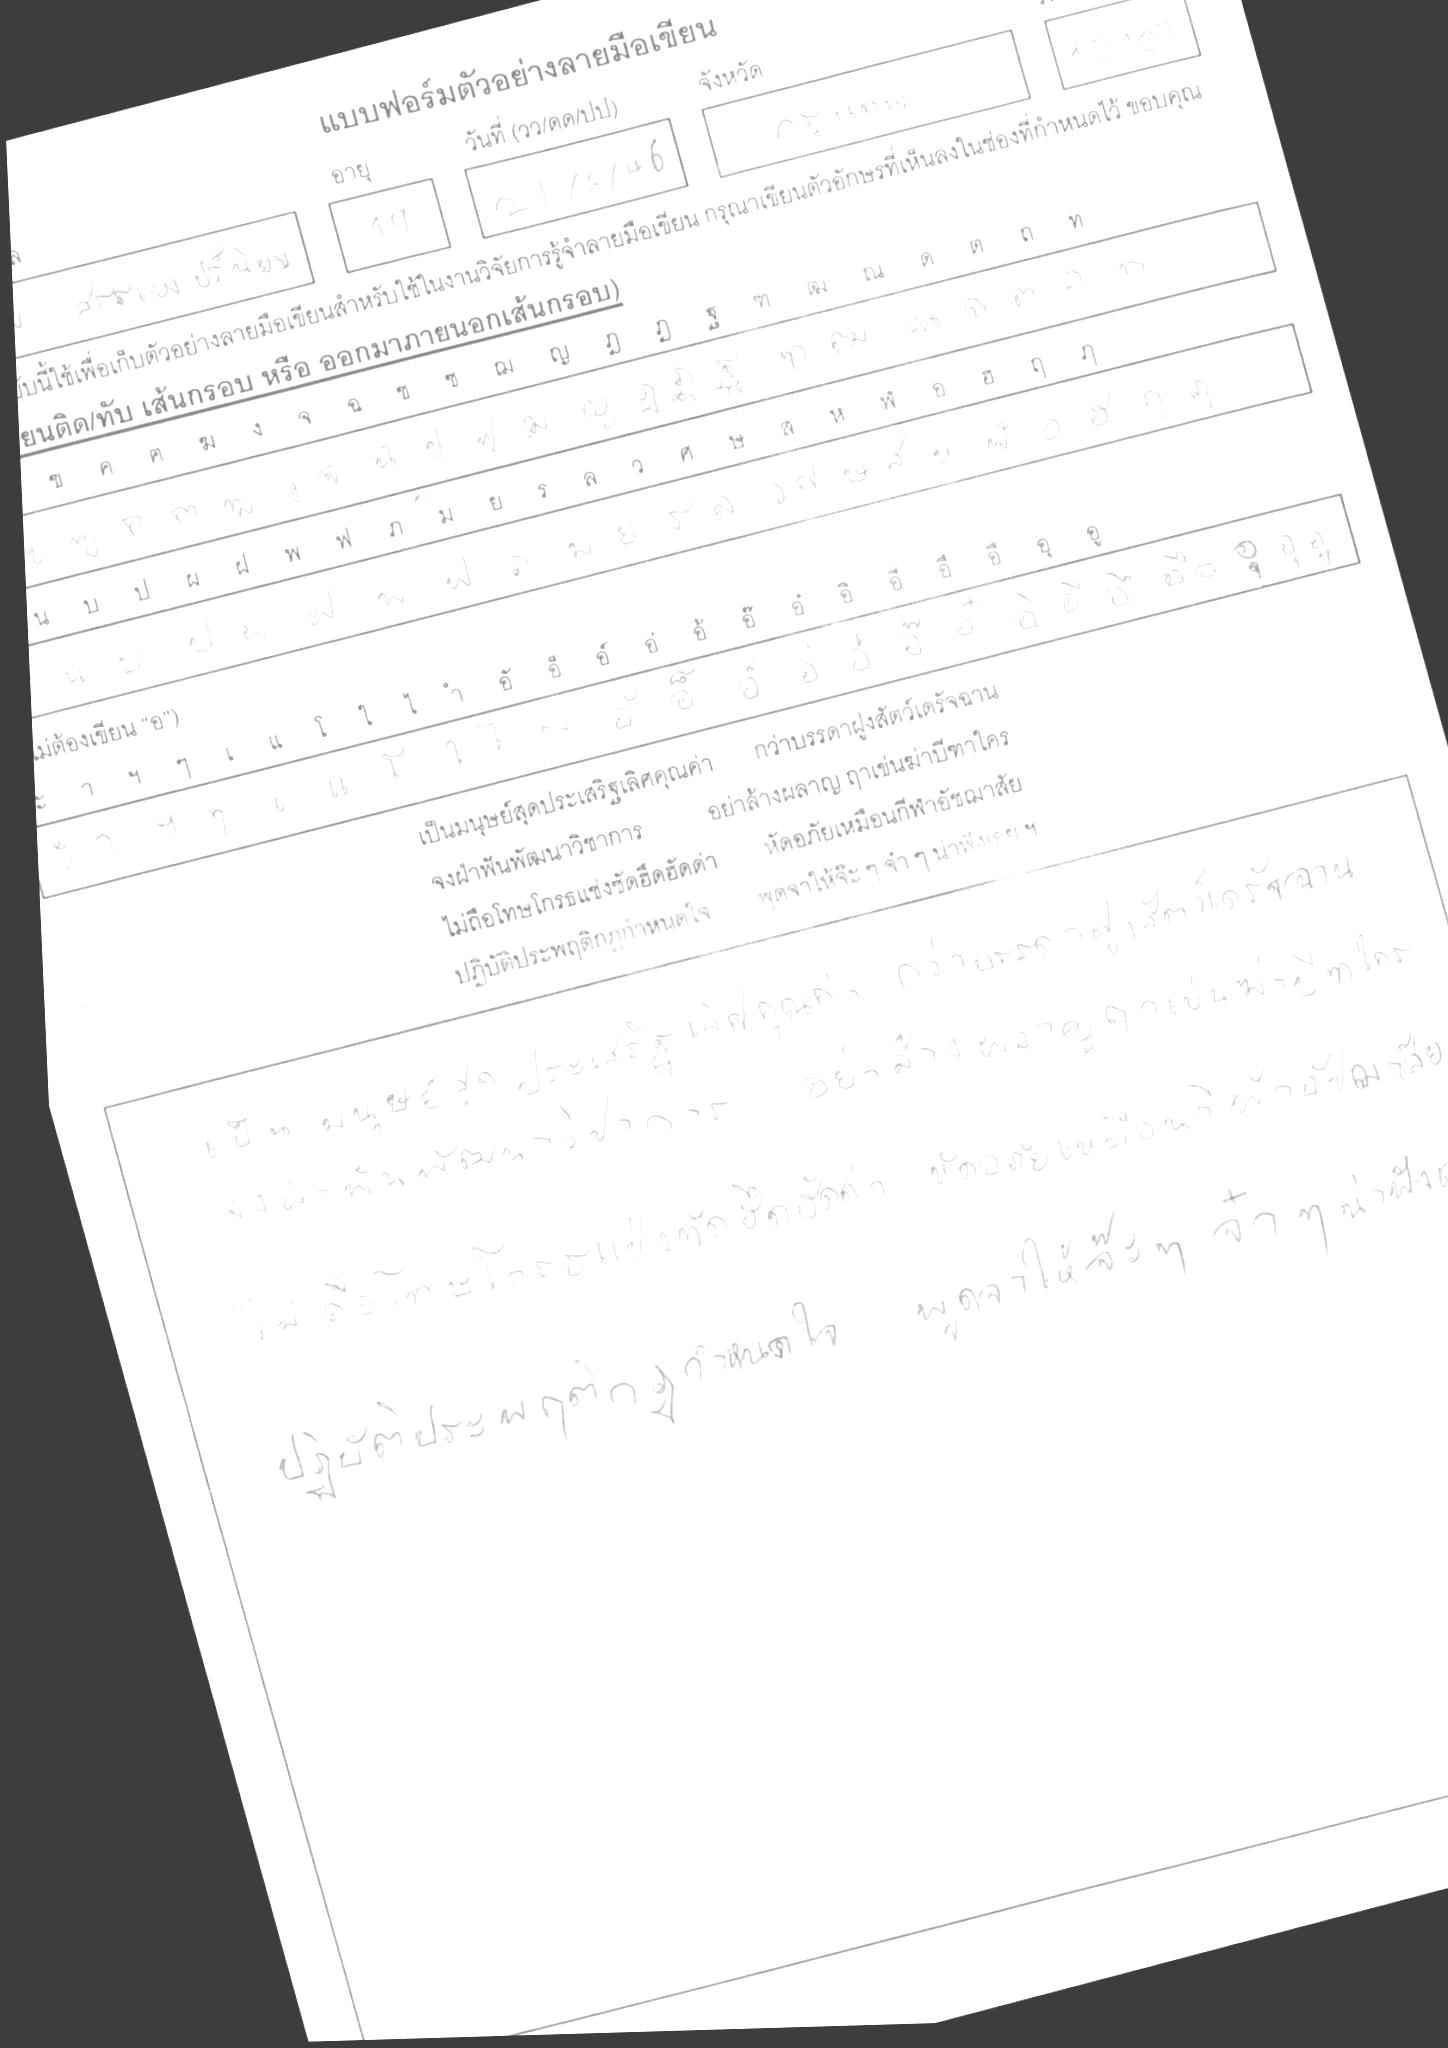 แบบฟอร์มตัวอย่างลายมือเขียน
อายุ วันที่ (วว/ดด/ปป) จังหวัด
19 21/5/46 กรุงเทพ
บับนี้ใช้เพื่อเก็บตัวอย่างลายมือเขียนสำหรับใช้ในงานวิจัยการรู้จำลายมือเขียน กรุณาเขียนตัวอักษรที่เห็นลงในช่องที่กำหนดไว้ ขอบคุณ
ยนติด/ทับ เส้นกรอบ หรือ ออกมาภายนอกเส้นกรอบ)
ข ค ฅ ฆ ง จ ฉ ช ซ ฌ ญ ฎ ฏ ฐ ฑ ฒ ณ ด ต ถ ท
ข ฃ ค ฅ ฆ ง จ ฉ ช ซ ฌ ญ ฎ ฏ ฐ ฑ ฒ ณ ด ต ถ ท
น บ ป ผ ฝ พ ฟ ภ ม ย ร ล ว ศ ษ ส ห ฬ อ ฮ ฤ ฦ
น บ ป ผ ฝ พ ฟ ภ ม ย ร ล ว ศ ษ ส ห ฬ อ ฮ ฤ ฦ
ม่ต้องเขียน “อ”)
ะ า ฯ ๆ เ แ โ ใ ไ ำ อั อ็ อ์ อ่ อ้ อ๊ อ๋ อิ อี อึ อื อุ อู
ะ า ฯ ๆ เ แ โ ใ ไ ำ อั อ็ อ์ อ่ อ้ อ๊ อ๋ อิ อี อึ อื อุ อู
เป็นมนุษย์สุดประเสริฐเลิศคุณค่า กว่าบรรดาฝูงสัตว์เดรัจฉาน
จงฝ่าฟันพัฒนาวิชาการ อย่าล้างผลาญ ฤาเข่นฆ่าบีฑาใคร
ไม่ถือโทษโกรธแช่งซัดฮึดฮัดด่า หัดอภัยเหมือนกีฬาอัชฌาสัย
ปฏิบัติประพฤติกฎกำหนดใจ พูดจาให้จ๊ะ ๆ จ๋า ๆ น่าฟังเอย ฯ
เป็น มนุษย์ สุด ประเสริฐ เลิศคุณค่า กว่าบรรดาฝูงสัตว์เดรัจฉาน
จงฝ่าฟันพัฒนาวิชาการ อย่าล้างผลาญฤาเข่นฆ่าบีฑาใคร
ไม่ถือโทษโกรธแช่งซัดฮึดฮัดด่า หัดอภัยเหมือนกีฬาอัชฌาสัย
ปฏิบัติประพฤติกฎกำหนดใจ พูดจาให้จ๊ะๆ จ๋าๆ น่าฟัง